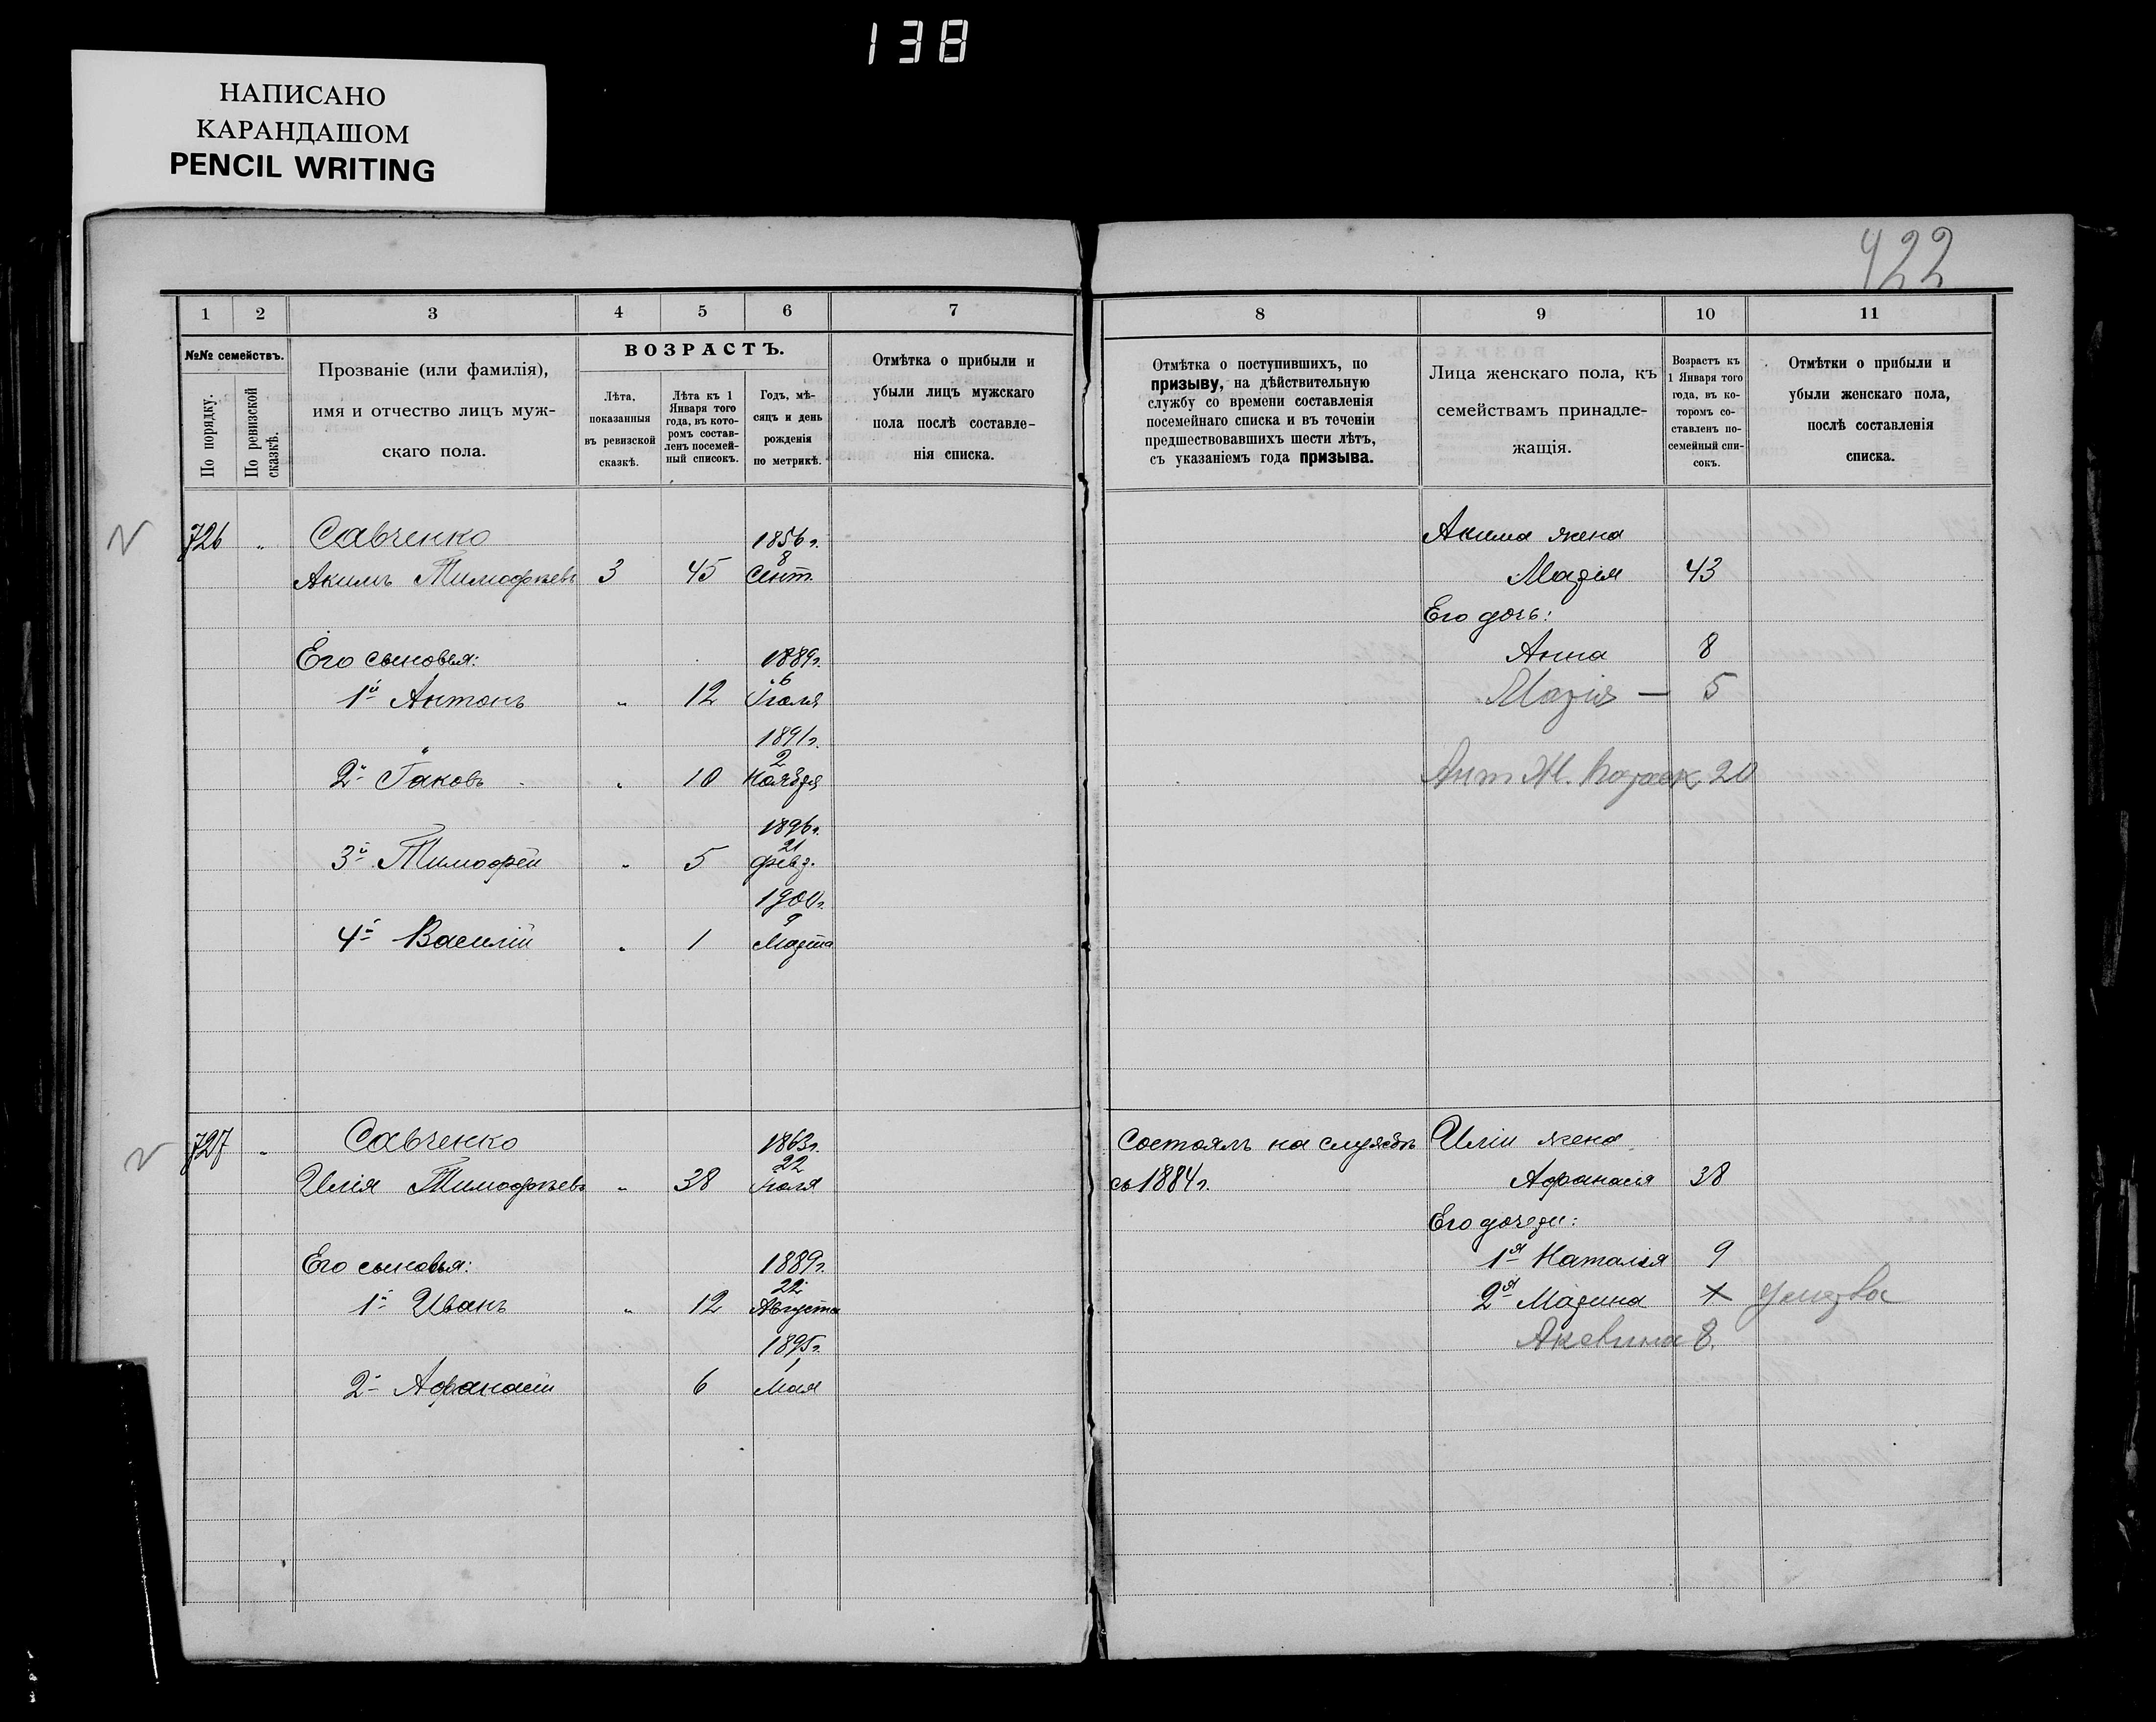 138
НАПИСАНО
КАРАНДАШОМ
PENCIL WRITING
422
1 2 3 4 5 6 7
№№ семействъ.
По порядку.
По ревизской сказкѣ.
Прозваніе (или фамилія),
имя и отчество лицъ муж-
скаго пола.
ВОЗРАСТЪ.
Лѣта,
показанныя
въ ревизской
сказкѣ.
Лѣта къ 1
Января того
года, въ кото-
ромъ состав-
ленъ посемей-
ный списокъ.
Годъ, мѣ-
сяцъ и день
рожденія
по метрикѣ.
Отмѣтка о прибыли и
убыли лицъ мужскаго
пола послѣ составле-
нія списка.
726 " Савченко 1856 г.
8
Акимъ Тимофѣевъ 3 45 Сент.
Его сыновья: 1889 г.
6
1й Антонъ " 12 Іюля
1891 г.
2
2й Іаковъ " 10 Ноября
1896 г.
21
3й Тимофей " 5 февр.
1900 г.
9
4й Василій " 1 Марта
727 " Савченко 1863 г.
22
Илія Тимофѣевъ " 38 Іюля
Его сыновья: 1889 г.
22
1й Иванъ " 12 Августа
1895 г.
1
2й Афанасій 6 Мая
8 9 10 11
Отмѣтка о поступившихъ, по
призыву, на дѣйствительную
службу со времени составленія
посемейнаго списка и въ теченіи
предшествовавшихъ шести лѣтъ,
съ указаніемъ года призыва.
Лица женскаго пола, къ
семействамъ принадле-
жащія.
Возрастъ къ
1 Января того
года, въ ко-
торомъ со-
ставленъ по-
семейный спи-
сокъ.
Отмѣтки о прибыли и
убыли женскаго пола,
послѣ составленія
списка.
Акима жена
Марія 43
Его дочь:
Анна 8
Марія — 5
Ант. Ж. 20
Состоялъ на службѣ Иліи жена
съ 1884 г. Афанасія 38
Его дочери:
1я Наталія 9
2я Марина
Акевина 8.